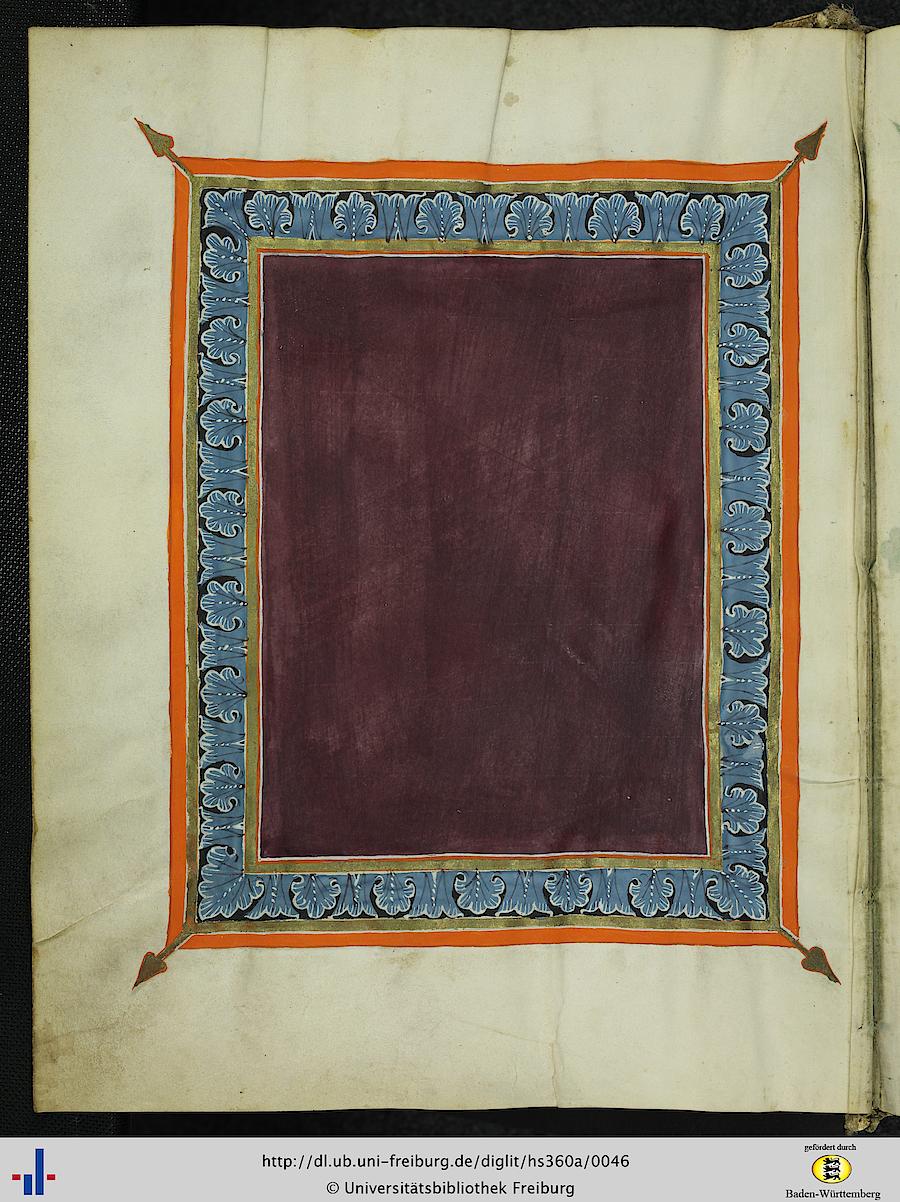 http://dl.ub.uni-freiburg.de/diglit/hs360a/0046
© Universitätsbibliothek Freiburg
gefördert durch
Baden-Württemberg